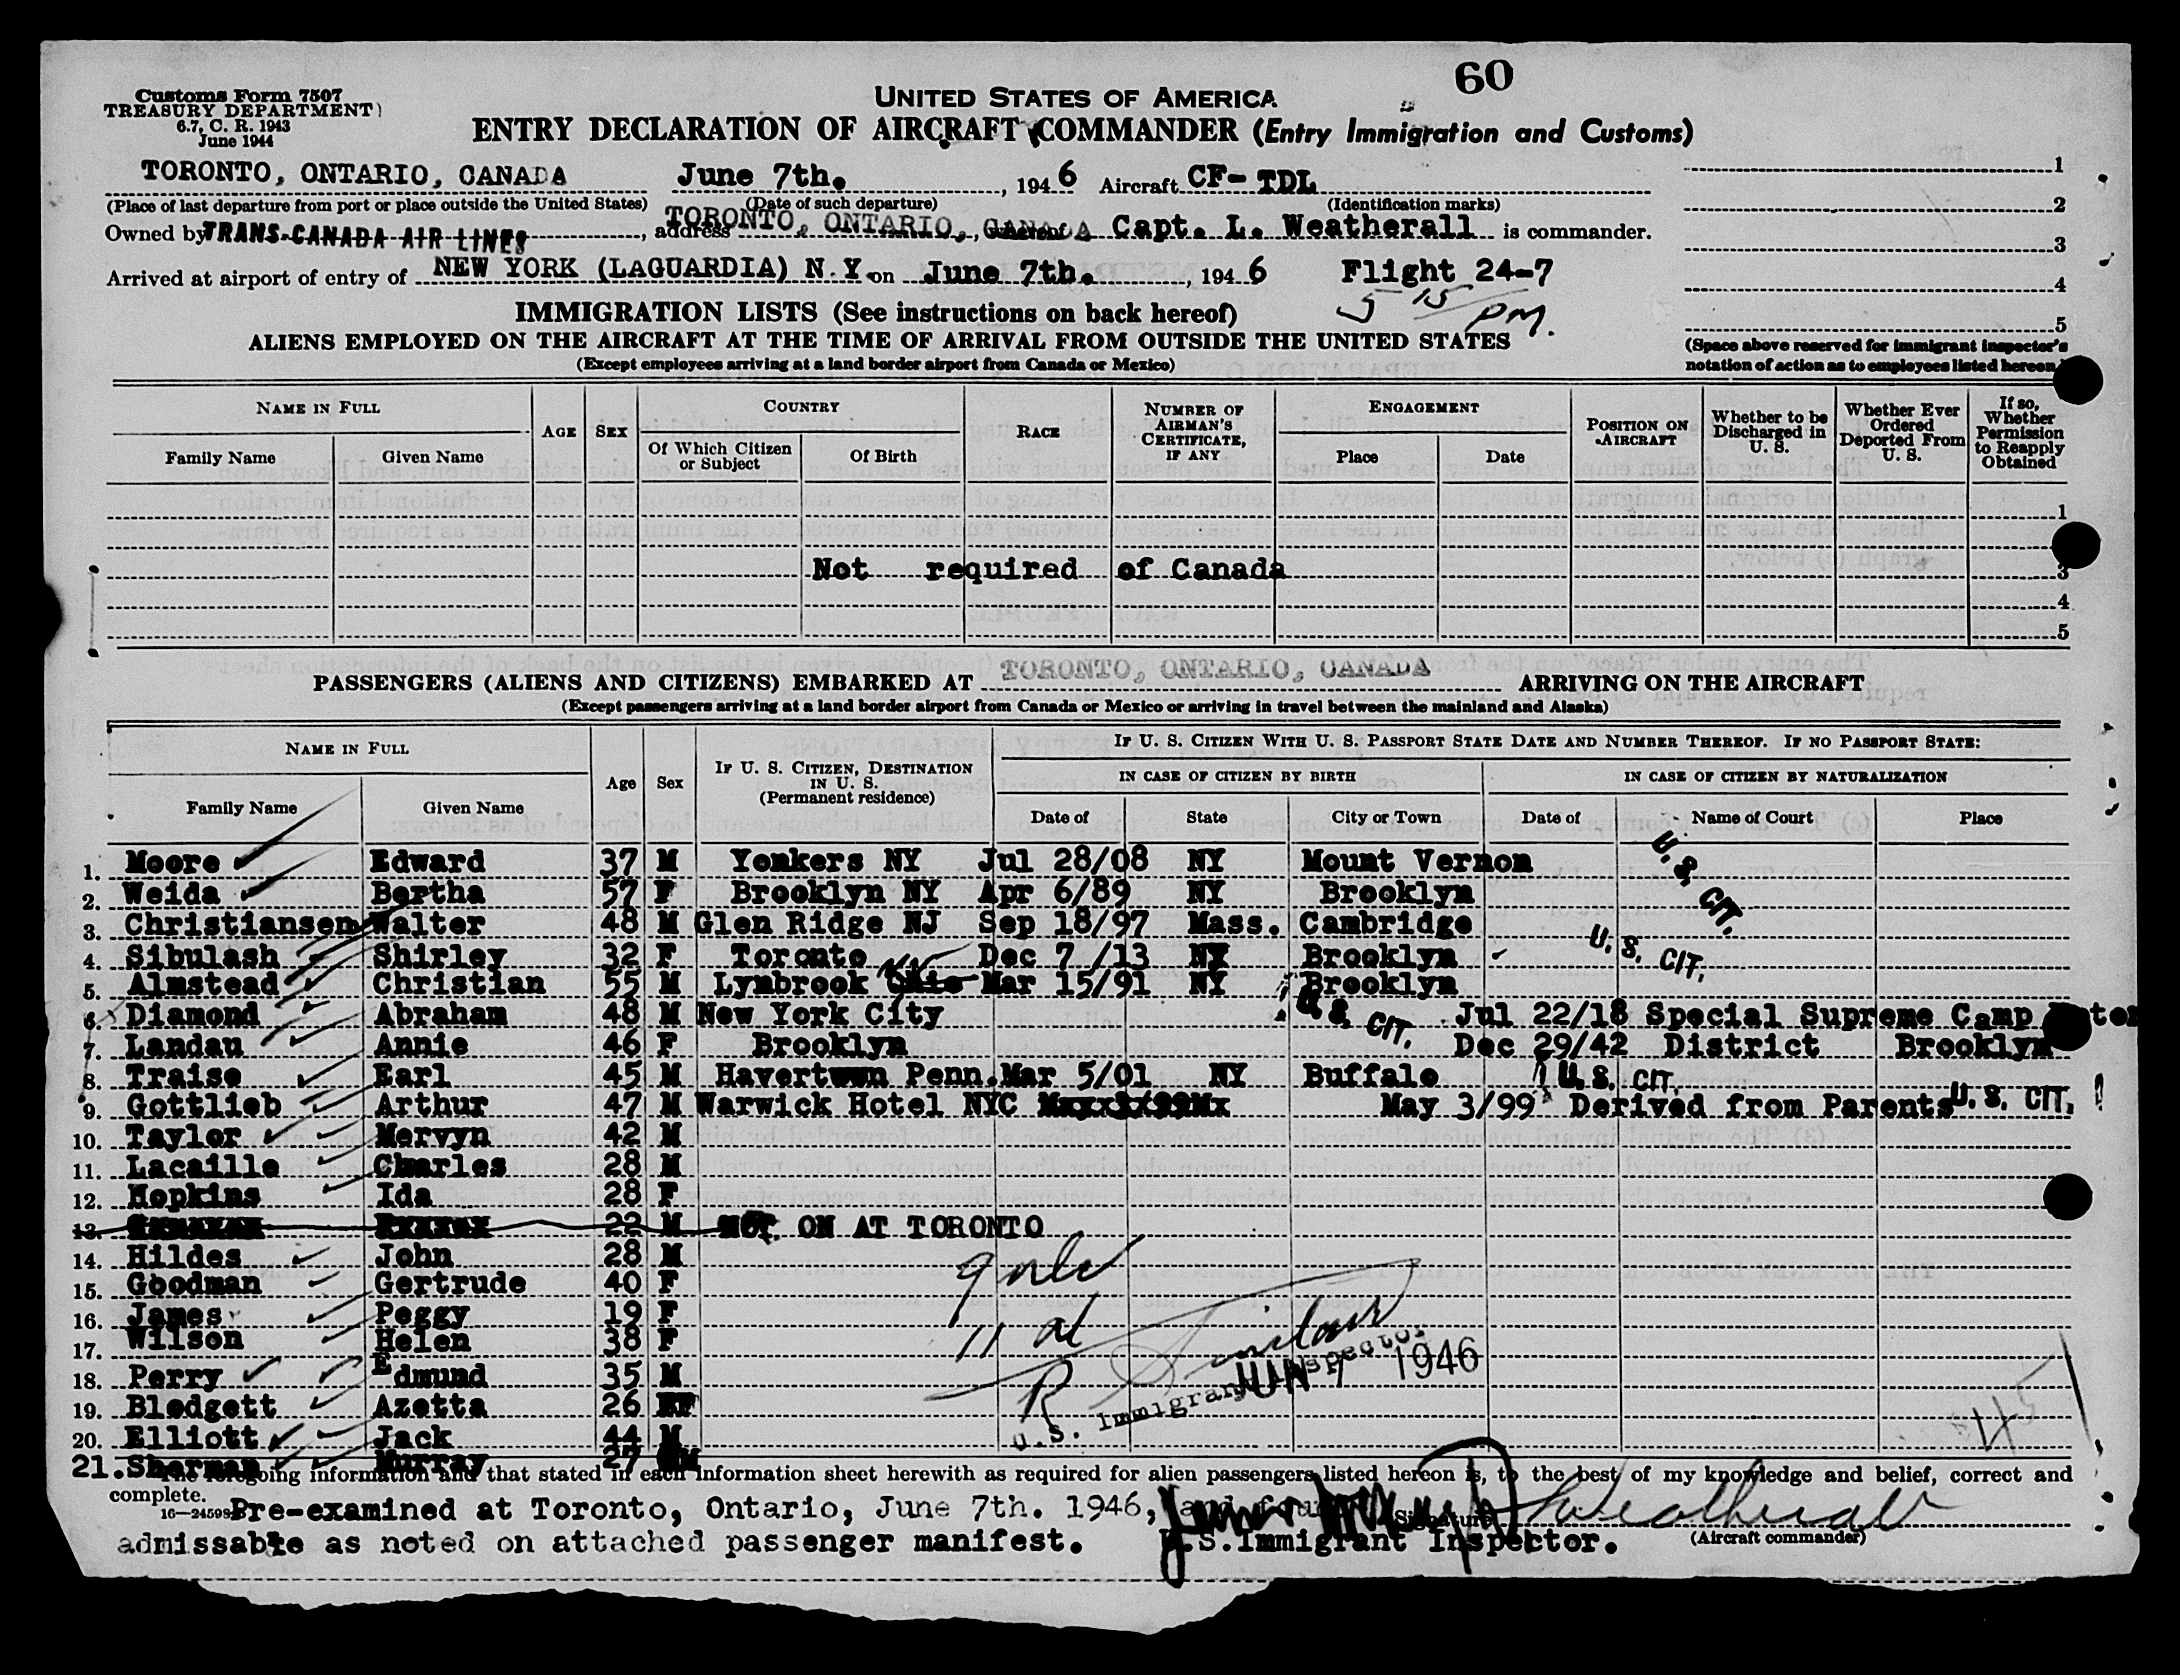 60
Customs Form 7507
TREASURY DEPARTMENT
6.7, C. R. 1943
June 1944
UNITED STATES OF AMERICA
ENTRY DECLARATION OF AIRCRAFT COMMANDER (Entry Immigration and Customs)
TORONTO, ONTARIO, CANADA June 7th. , 1946 Aircraft CF-TDL 1
(Place of last departure from port or place outside the United States) (Date of such departure) (Identification marks) 2
Owned by TRANS-CANADA AIR LINES , address TORONTO, ONTARIO, CANADA Capt. L. Weatherall is commander. 3
Arrived at airport of entry of NEW YORK (LAGUARDIA) N.Y. on June 7th. , 1946 Flight 24-7 4
5 15 PM.
IMMIGRATION LISTS (See instructions on back hereof) 5
ALIENS EMPLOYED ON THE AIRCRAFT AT THE TIME OF ARRIVAL FROM OUTSIDE THE UNITED STATES
(Space above reserved for immigrant inspector's
notation of action as to employees listed hereon.)
(Except employees arriving at a land border airport from Canada or Mexico)
NAME IN FULL
Family Name Given Name
AGE SEX
COUNTRY
Of Which Citizen or Subject Of Birth
RACE
NUMBER OF AIRMAN'S CERTIFICATE, IF ANY
ENGAGEMENT
Place Date
POSITION ON AIRCRAFT
Whether to be Discharged in U. S.
Whether Ever Ordered Deported From U. S.
If so, Whether Permission to Reapply Obtained
1
Not required of Canada 3
4
5
PASSENGERS (ALIENS AND CITIZENS) EMBARKED AT TORONTO, ONTARIO, CANADA ARRIVING ON THE AIRCRAFT
(Except passengers arriving at a land border airport from Canada or Mexico or arriving in travel between the mainland and Alaska)
NAME IN FULL
Family Name Given Name
Age Sex
IF U. S. CITIZEN, DESTINATION IN U. S. (Permanent residence)
IF U. S. CITIZEN WITH U. S. PASSPORT STATE DATE AND NUMBER THEREOF. IF NO PASSPORT STATE:
IN CASE OF CITIZEN BY BIRTH IN CASE OF CITIZEN BY NATURALIZATION
Date of State City or Town Date of Name of Court Place
1. Moore Edward 37 M Yonkers NY Jul 28/08 NY Mount Vernon
U. S. CIT.
2. Weida Bertha 57 F Brooklyn NY Apr 6/89 NY Brooklyn
3. Christiansen Walter 48 M Glen Ridge NJ Sep 18/97 Mass. Cambridge
4. Sibulash Shirley 32 F Toronto Dec 7 /13 NY Brooklyn U. S. CIT.
5. Almstead Christian 55 M Lynbrook NY Mar 15/91 NY Brooklyn
6. Diamond Abraham 48 M New York City U. S. CIT. Jul 22/18 Special Supreme Camp
7. Landau Annie 46 F Brooklyn Dec 29/42 District Brooklyn
8. Traise Earl 45 M Havertown Penn. Mar 5/01 NY Buffalo U. S. CIT.
9. Gottlieb Arthur 47 M Warwick Hotel NYC May 3/99 Derived from Parents U. S. CIT.
10. Taylor Mervyn 42 M
11. Lacaille Charles 28 M
12. Hopkins Ida 28 F
13. 22 M NOT ON AT TORONTO
14. Hildes John 28 M
15. Goodman Gertrude 40 F
16. James Peggy 19 F
17. Wilson Helen 38 F
18. Perry Edmund 35 M
19. Blodgett Azetta 26 F
20. Elliott Jack 44 M
21. Sherman Murray 27 M
11 al
R Sinclair
U.S. Immigrant Inspector
JUN 7 1946
The foregoing information and that stated in each information sheet herewith as required for alien passengers listed hereon is, to the best of my knowledge and belief, correct and
complete.
16—24598 Pre-examined at Toronto, Ontario, June 7th. 1946, and found Signature L Weatherall
admissable as noted on attached passenger manifest. U.S.Immigrant Inspector. (Aircraft commander)